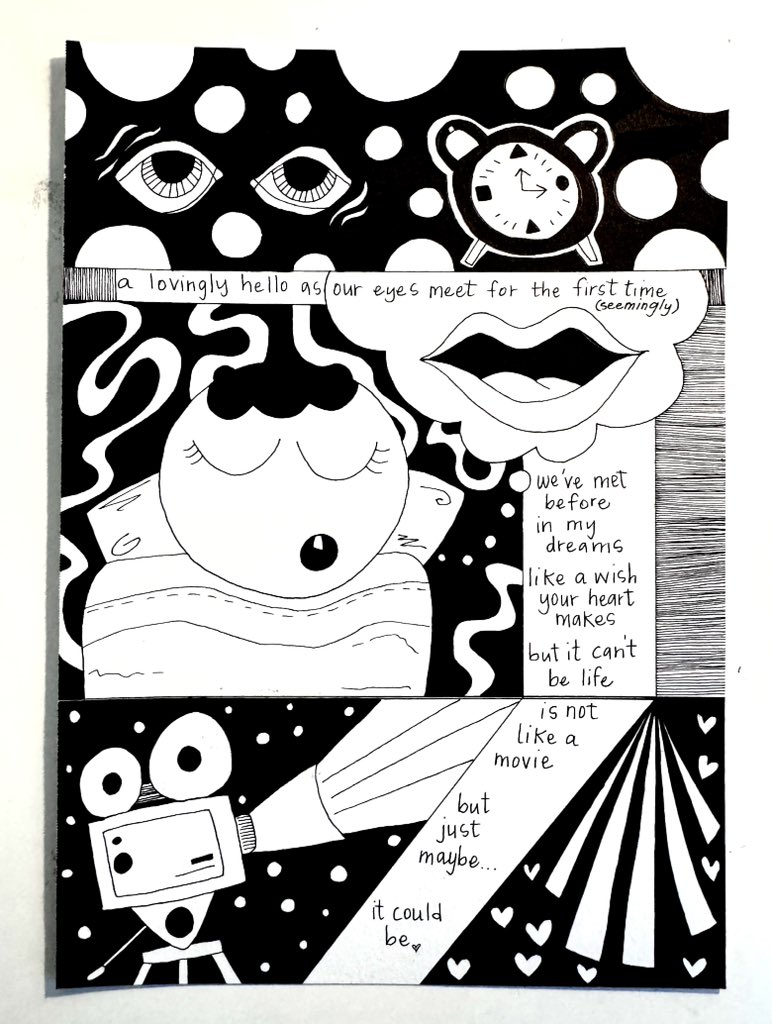 a lovingly hello as our eyes meet for the first time
(seemingly)
we've met
before
in my
dreams
like a wish
your heart
makes
but it can't
be life
is not
like a
movie
but
just
maybe...
it could
be